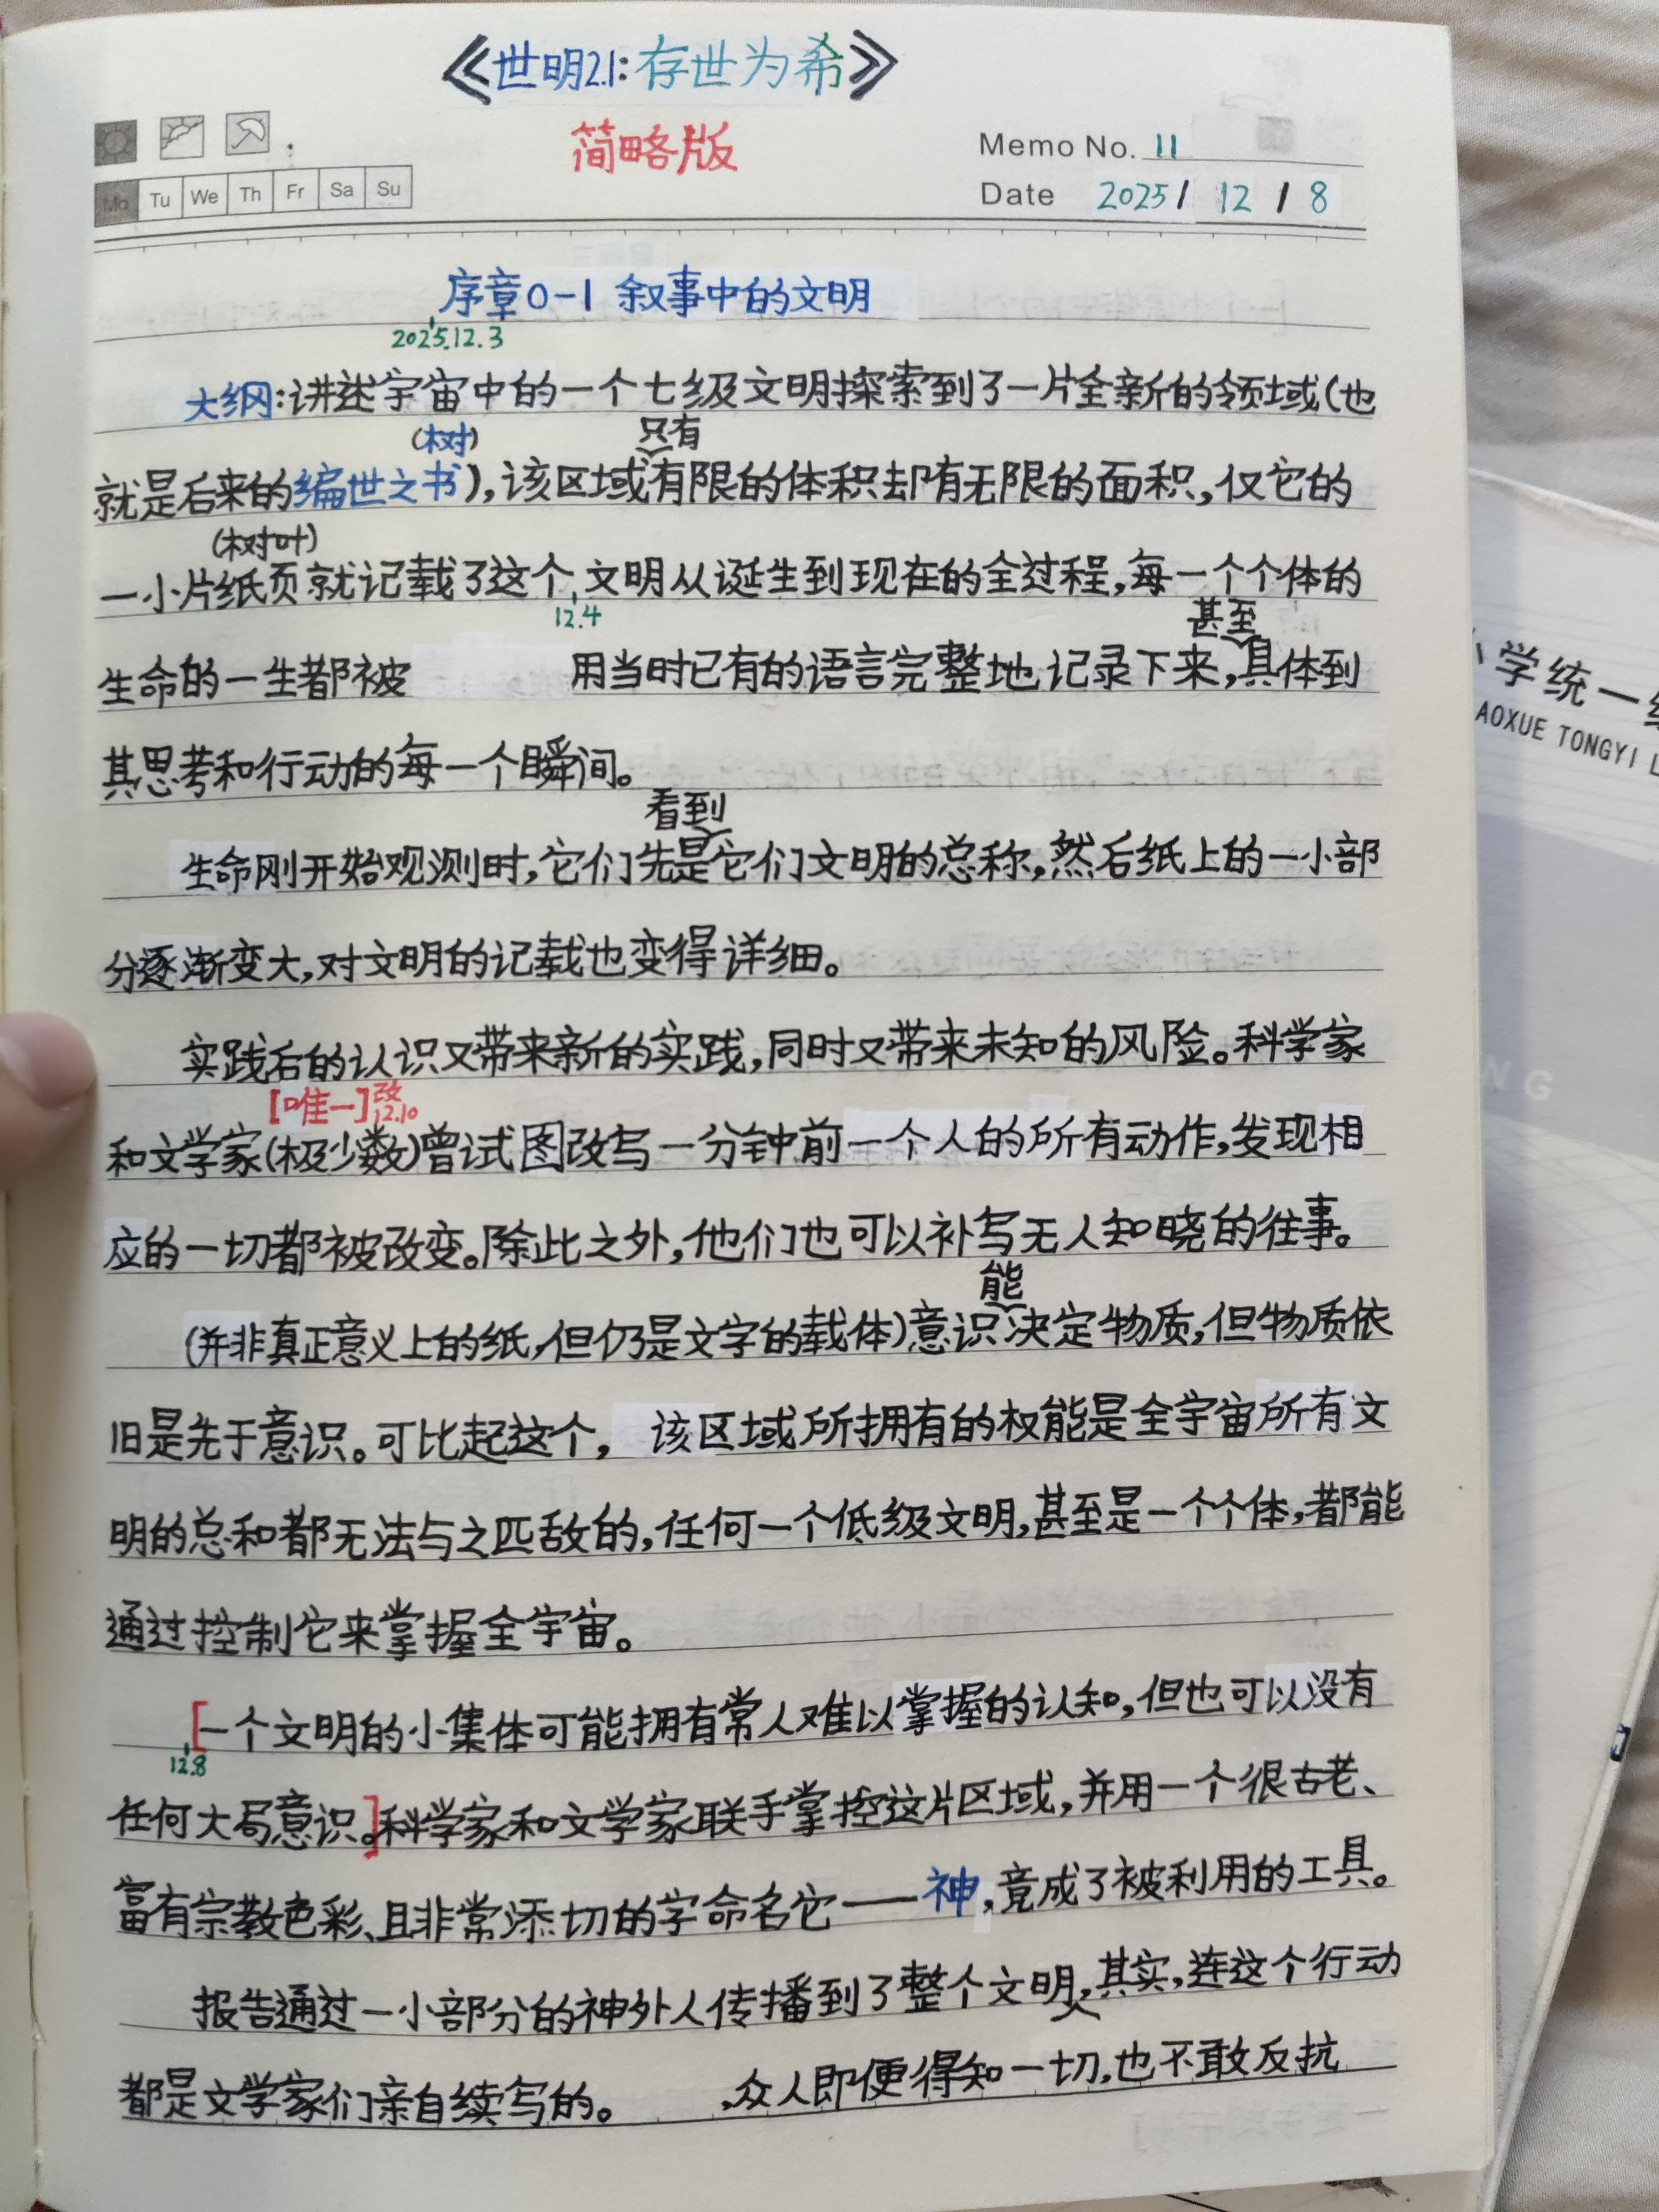 《世明2.1:存世为希》
简略版
Memo No. 11
Mo Tu We Th Fr Sa Su
Date 2025/12/8
序章0-1 叙事中的文明
2025.12.3
大纲:讲述宇宙中的一个七级文明探索到了一片全新的领域(也
(树) 只有
就是后来的编世之书),该区域有限的体积却有无限的面积,仅它的
(树叶)
一小片纸页就记载了这个文明从诞生到现在的全过程,每一个个体的
12.4 甚至
生命的一生都被 用当时已有的语言完整地记录下来,具体到
其思考和行动的每一个瞬间。
看到
生命刚开始观测时,它们先是它们文明的总称,然后纸上的一小部
分逐渐变大,对文明的记载也变得详细。
实践后的认识又带来新的实践,同时又带来未知的风险。科学家
[唯一]改12.10
和文学家(极少数)曾试图改写一分钟前一个人的所有动作,发现相
应的一切都被改变。除此之外,他们也可以补写无人知晓的往事。
能
(并非真正意义上的纸,但仍是文字的载体)意识决定物质,但物质依
旧是先于意识。可比起这个,该区域所拥有的权能是全宇宙所有文
明的总和都无法与之匹敌的,任何一个低级文明,甚至是一个个体,都能
通过控制它来掌握全宇宙。
[一个文明的小集体可能拥有常人难以掌握的认知,但也可以没有
12.8
任何大局意识。]科学家和文学家联手掌控这片区域,并用一个很古老、
富有宗教色彩、且非常添切的字命名它——神,竟成了被利用的工具。
报告通过一小部分的神外人传播到了整个文明,其实,连这个行动
都是文学家们亲自续写的。 ,众人即便得知一切,也不敢反抗
学统一
AOXUE TONGYI L
NG